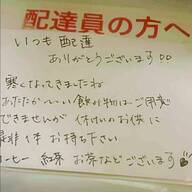 配達員の方へ
いつも配達
ありがとうございます
寒くなってきましたね
あたたかーい飲み物はご用意
できませんが 休けいのお供に
是非1本 お持ち下さい
コーヒー 紅茶 お茶などございます